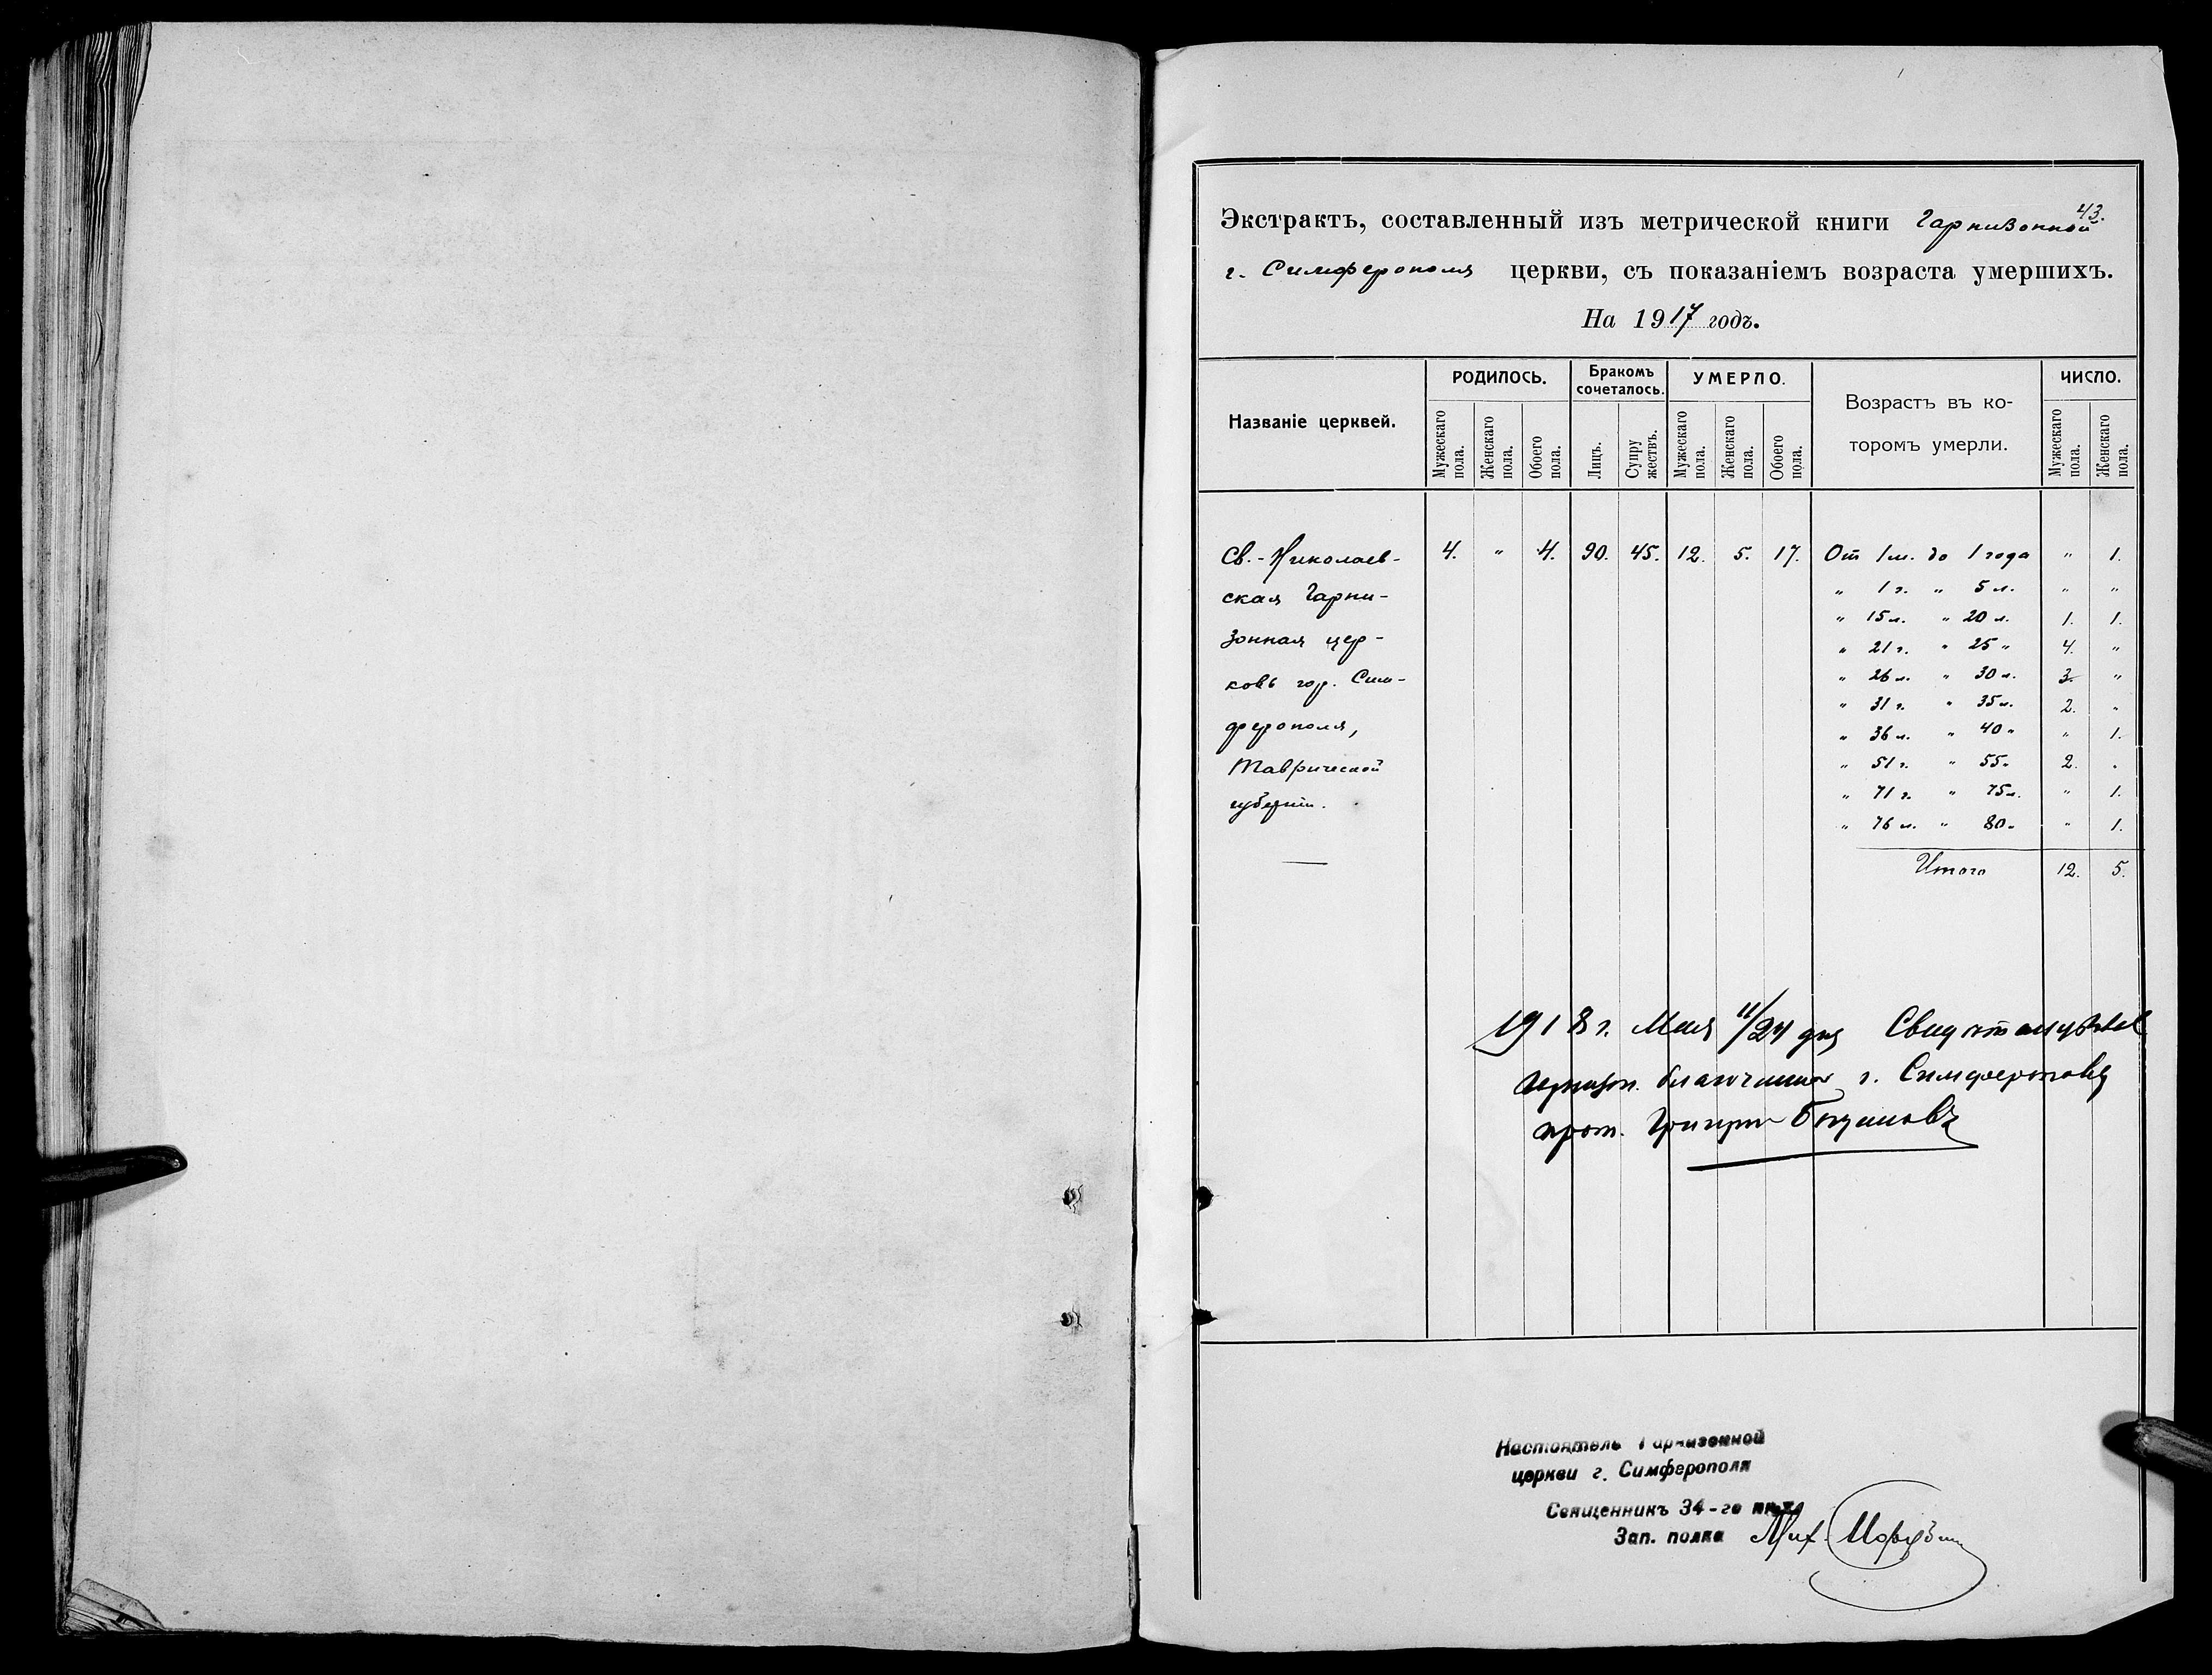 43.
Экстрактъ, составленный изъ метрической книги Гарнизонной
г. Симферополя церкви, съ показаніемъ возраста умершихъ.
На 1917 годъ.
Названіе церквей.
РОДИЛОСЬ.
Бракомъ
сочеталось.
УМЕРЛО.
Возрастъ въ ко-
торомъ умерли.
ЧИСЛО.
Мужескаго
пола.
Женскаго
пола.
Обоего
пола.
Лицъ.
Супру
жествъ.
Мужескаго
пола.
Женскаго
пола.
Обоего
пола.
Мужескаго
пола.
Женскаго
пола.
Св.-Николаев-
ская Гарни-
зонная цер-
ковь гор. Сим-
ферополя,
Таврической
губерніи.
4. " 4. 90. 45. 12. 5. 17.
От 1 м. до 1 года " 1.
" 1 г. " 5 л. " "
" 15 л. " 20 л. 1. 1.
" 21 г. " 25 " 4. "
" 26 л. " 30 л. 3. "
" 31 г. " 35 л. 2. "
" 36 л. " 40 " " 1.
" 51 г. " 55 " 2. "
" 71 г. " 75 л. " 1.
" 76 л. " 80 " " 1.
Итого 12. 5.
1918 г. Мая 11/24 дня
благочинный г. Симферополя
прот. Григорій
Настоятель Гарнизонной
церкви г. Симферополя
Священникъ 34-го пѣх.
Зап. полка Мих.